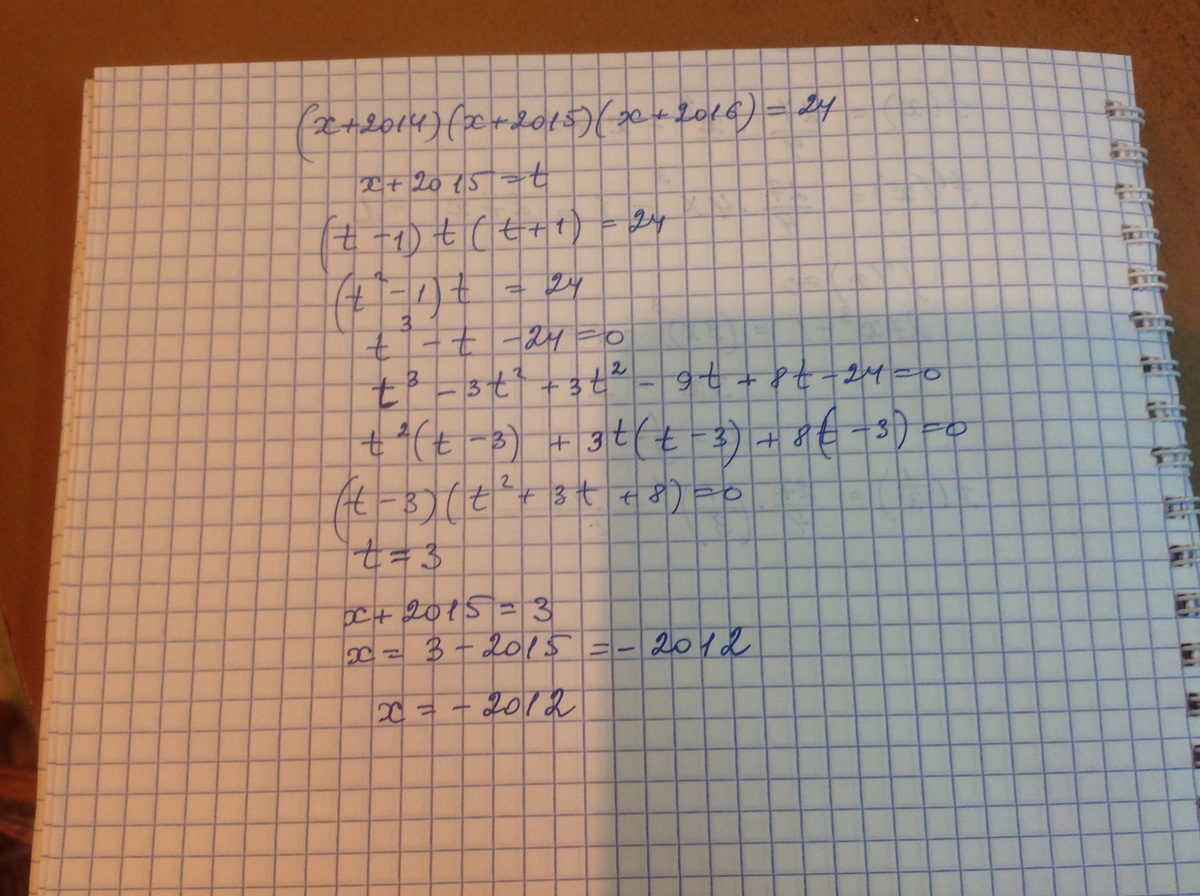 (x+2014)(x+2015)(x+2016)=24
x+2015=t
(t-1)t(t+1)=24
(t²-1)t=24
t³-t-24=0
t³-3t²+3t²-9t+8t-24=0
t²(t-3)+3t(t-3)+8(t-3)=0
(t-3)(t²+3t+8)=0
t=3
x+2015=3
x=3-2015=-2012
x=-2012